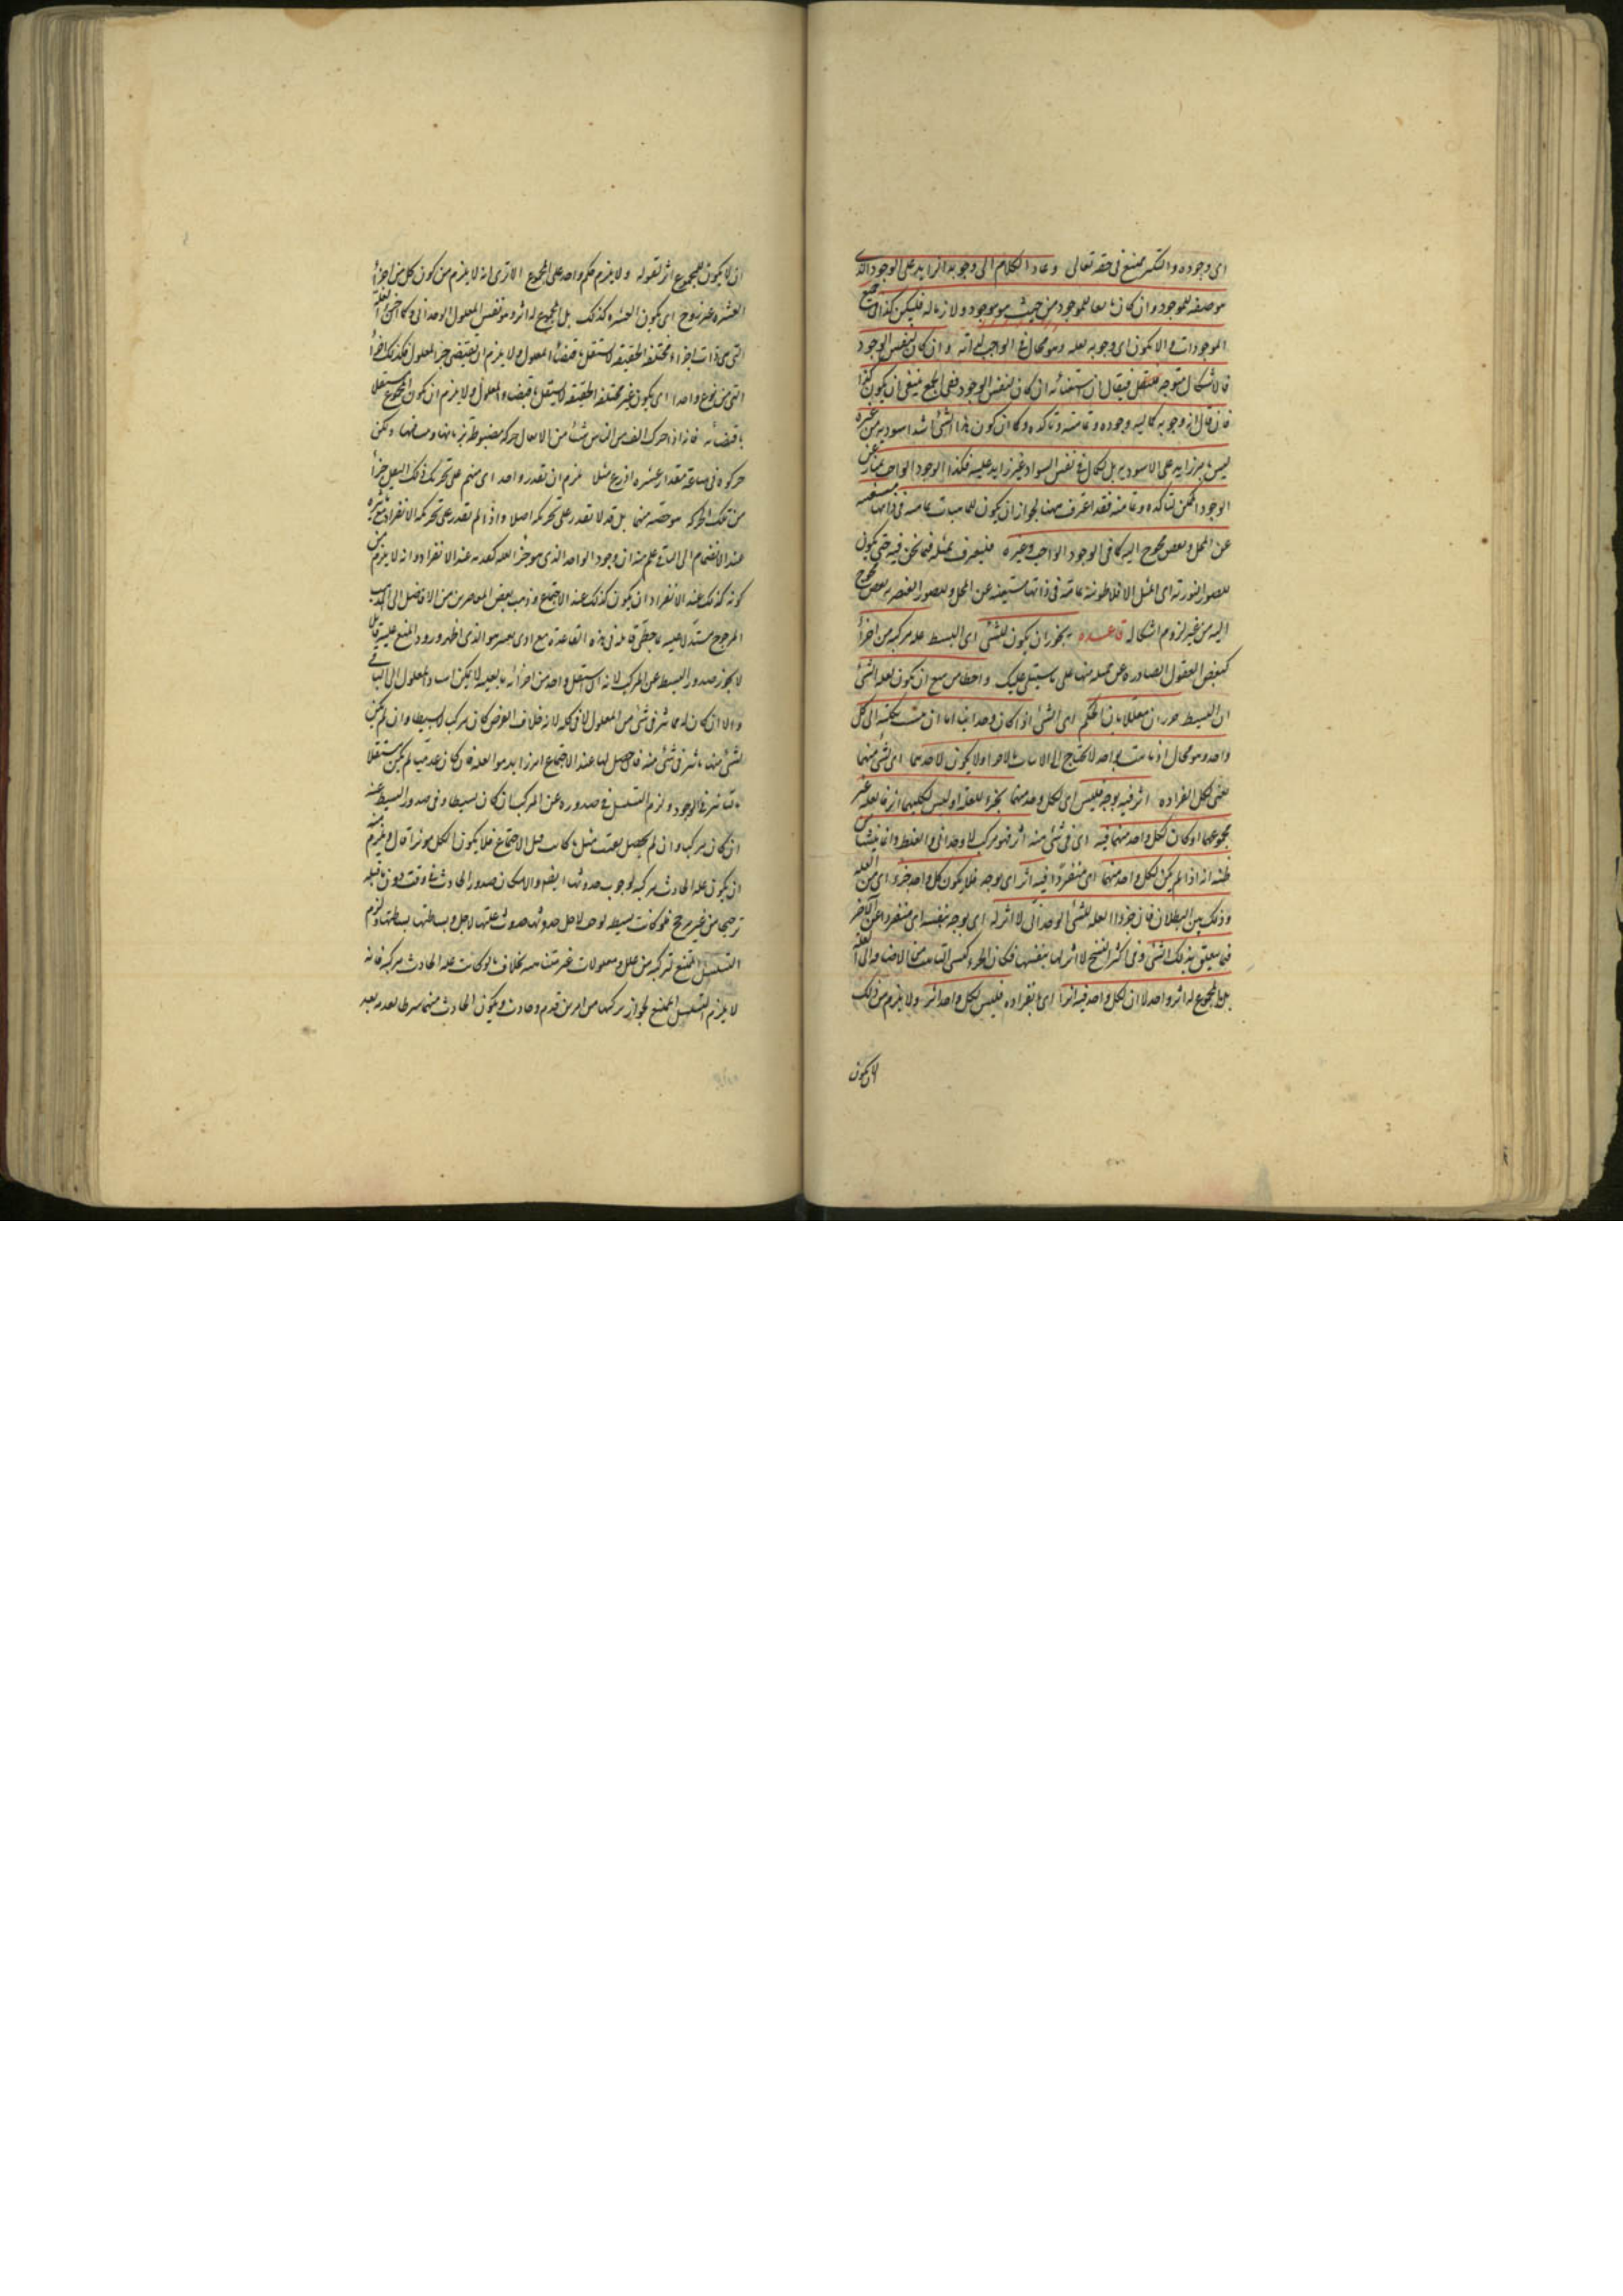 اى وجوده والتكثر ممتنع فى حقه تعالى وعاد الكلام الى وجوبه الزايد على الوجود الذى
هو صفة للموجود وان كان تابعا للموجود من حيث هو موجود ولازما له فليكن كذا فى جميع
الموجودات والا يكون اى وجوبه لعلة وهو محال فى الواجب لذاته وان كان لنفس الوجود
فالاشكال متوجه فيقال ان استغنائه ان كان لنفس الوجود ففى الجميع ينبغى ان يكون كذا
فان قال ان وجوبه كمالية وجوده وتماميته وتاكده وكما ان كون هذا الشئ اشد اسودية من غيره
ليس بامر زايد على الاسودية بل لكمال فى نفس السواد غير زايد عليه فكذا الوجود الواجب يمتاز عن
الوجود الممكن لتاكده وتماميته فقد اعترف ههنا بجواز ان يكون للماهيات تمامية فى ذاتها مستغنية
عن المحل ونقص محوج اليه كما فى الوجود الواجب وغيره فليعترف بمثله فيما نحن فيه حتى يكون
للصور النورية اى المثل الافلاطونية تمامية فى ذاتها مستغنية عن المحل وللصور العنصرية نقص محوج
اليه من غير لزوم اشكاله قاعدة يجوز ان يكون للشئ اى البسيط علة مركبة من اجزأ
كبعض العقول الصادرة عن جملة منها على ما سيتلى عليك واخطأ من منع ان يكون لعلة الشئ
ان البسيط جزءان معللا بان الحكم اى الشئ اذا كان وحدانيا اما ان ينسب بكليته الى كل
واحد وهو محال اذ ما ثبت بواحد لا يحتاج الى الاثبات بالآخر او لا يكون لاحدهما اى لشئ منهما
يعنى لكل انفراده اثر فيه بوجه فليس اى لكل واحد منهما بجزء للعلة او ليس لكليهما اثر فالعلة غير
مجموعهما او كان لكل واحد منهما فيه اى فى شئ منه اثر فهو مركب لا وحدانى والغلط وانما ينشأ من
ظنه انه اذا لم يكن لكل واحد منهما اى منفردا فيه اثر اى بوجه فلا يكون كل واحد جزء اى من العلة
وذلك بين البطلان فان جزء العلة للشئ الوحدانى لا اثر له اى بوجه بنفسه اى منفردا عن الآخر
فيما يتعلق بذلك الشئ وفى اكثر النسخ لا اثر لها بنفسها
بل المجموع له اثر واحد لا ان لكل واحد فيه اثرا اى بانفراده فليس لكل واحد اثر ولا يلزم من ذلك
ان لا يكون
ان لا يكون للمجموع اثر لقوله ولا يلزم حكم واحد على المجموع الا ترى انه لا يلزم من كون كل من اجزأ
العشرة غير زوج اى يكون العشرة كذلك بل المجموع له اثر وهو نفس المعلول الوحدانى وكما ان جزء العلة
التى هى ذات اجزاء مختلفة الحقيقة لا يستقل باقتضاء المعلول ولا يلزم ان يقتضى جزء المعلول فكذلك اجزأ
التى من نوع واحد اى يكون غير مختلفة الحقيقة لا يستقل باقتضاء المعلول ولا يلزم ان يكون المجموع مستقلا
باقتضائه فانه اذا حرك الف من الناس شيئا من الاثقال حركة مضبوطة بزمانها ومسافتها وليكن
حركوه فى ساعة مقدار عشرة اذرع مثلا لم يلزم ان يقدر واحد اى منهم على تحريك ذلك الثقيل جزأ
من تلك الحركة هو حصته منها بل قد لا يقدر على تحريكه اصلا واذا لم يقدر على تحريكه الانفراد مع تاثيره
عند الانضمام الى الباقى علم منه ان وجود الواحد الذى هو جزء العلة كعدمه عند الانفراد وانه لا يلزم من
كونه كذلك عند الانفراد ان يكون كذلك عند الاجتماع وذهب بعض المعاصرين من الافاضل الى المذهب
المرجوح مستدلا عليه
لا يجوز صدور البسيط عن المركب لانه ان استقل واحد من اجزائه بالعلية لا يمكن اسناد المعلول الى الباقى
والا ان كان له تاثير فى شئ من المعلول لا فى كله لانه خلاف الفرض كان مركبا لا بسيطا وان لم يكن
لشئ منها تاثير فى شئ منه فان حصل لها عند الاجتماع امر زايد هو العلة فان كان عدميا لم يكن مستقلا
بالتاثير فى الوجود ولزم التسلسل فى صدوره عن المركب ان كان بسيطا وفى صدور البسيط عنه
ان كان مركبا وان لم يحصل بقيت مثل ما كانت قبل الاجتماع فلا يكون الكل مؤثرا قال ويلزم منه
ان يكون علة الحادث مركبة لوجوب حدوثها ايضا والا لكان صدور الحادث فى وقت دون ما قبله
ترجيحا من غير مرجح فلو كانت بسيطة لوجب لاجل حدوثها حدوث علتها ولاجل بساطتها بساطتها ولزم
التسلسل الممتنع لتركبه من علل ومعلولات غير متناهية بخلاف ما لو كانت علة الحادث مركبة فانه
لا يلزم التسلسل الممتنع لجواز تركبها من امرين قديم وحادث ويكون الحادث منهما شرطا بعدمه بعد